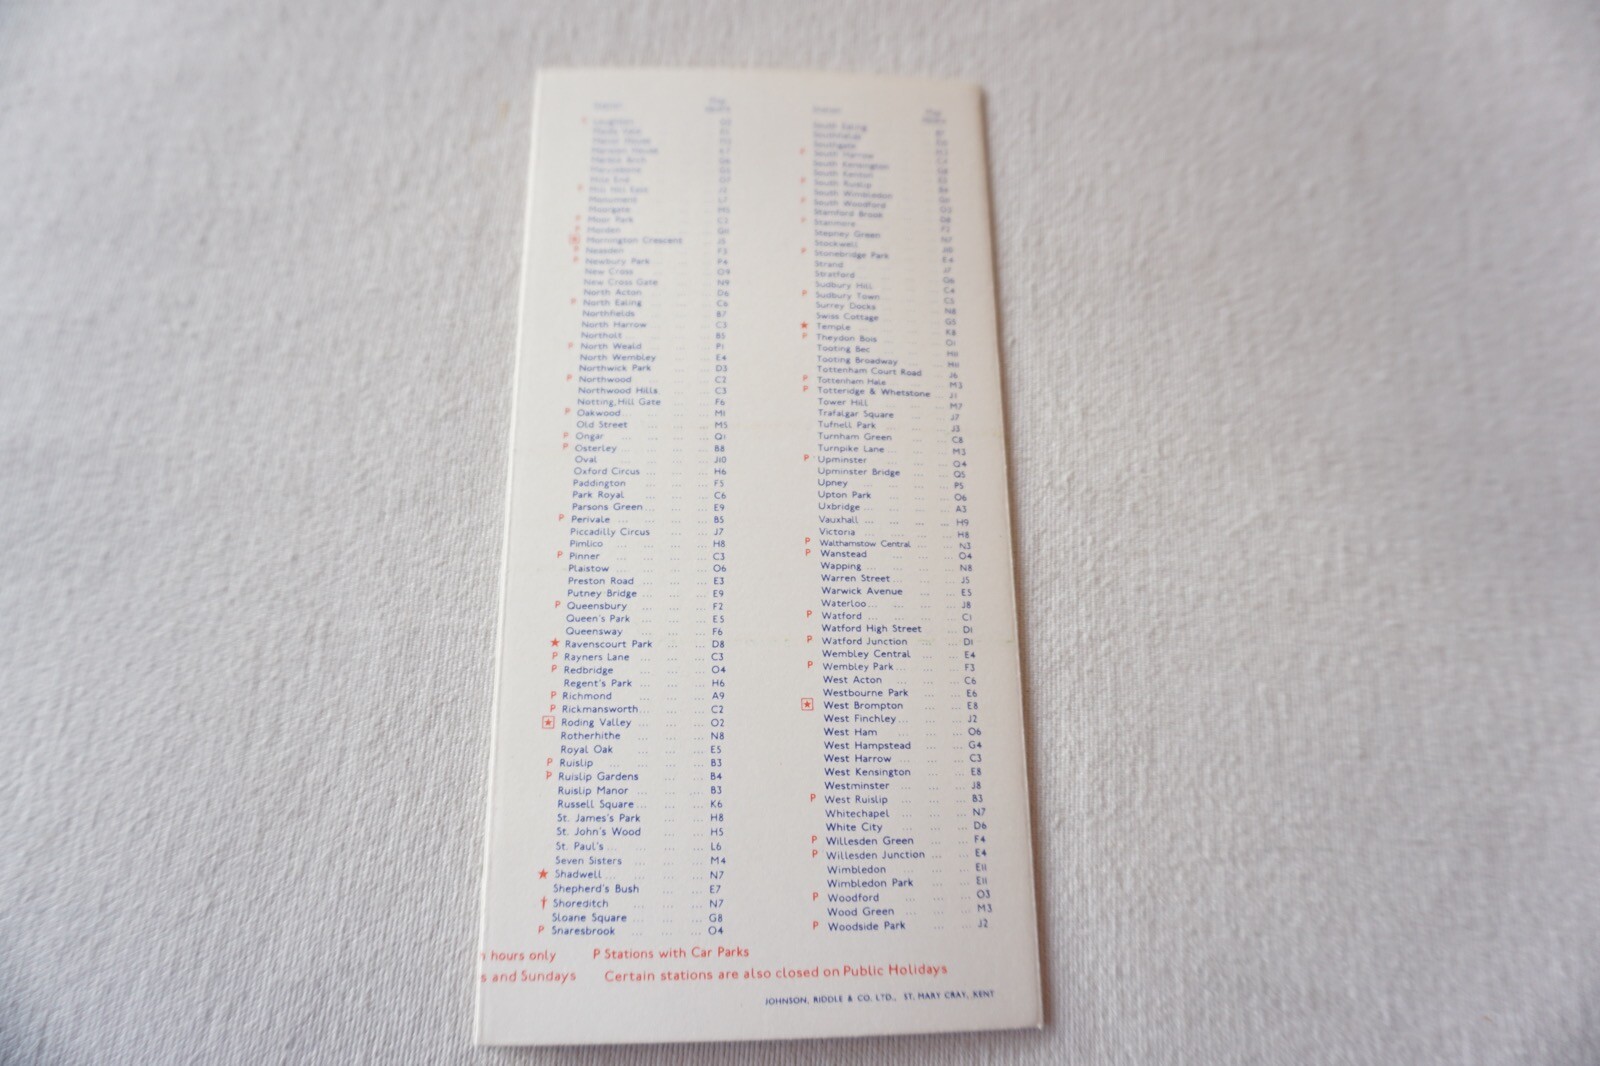 Mornington Crescent J5
P Newbury Park F4
New Cross O9
New Cross Gate N9
North Acton D6
P North Ealing C6
Northfields B7
North Harrow C3
Northolt B5
P North Weald P1
North Wembley E4
Northwick Park D3
P Northwood C2
Northwood Hills C3
Notting Hill Gate F6
P Oakwood M1
Old Street M5
P Ongar Q1
P Osterley B8
Oval J10
Oxford Circus H6
Paddington F5
Park Royal C6
Parsons Green E9
P Perivale B5
Piccadilly Circus J7
Pimlico H8
P Pinner C3
Plaistow O6
Preston Road E3
Putney Bridge E9
P Queensbury F2
Queen's Park E5
Queensway F6
★ Ravenscourt Park D8
P Rayners Lane C3
P Redbridge O4
Regent's Park H6
P Richmond A9
P Rickmansworth C2
★ Roding Valley O2
Rotherhithe N8
Royal Oak E5
P Ruislip B3
P Ruislip Gardens B4
Ruislip Manor B3
Russell Square K6
St. James's Park H8
St. John's Wood H5
St. Paul's L6
Seven Sisters M4
★ Shadwell N7
Shepherd's Bush E7
† Shoreditch N7
Sloane Square G8
P Snaresbrook O4
South Ealing
Southfields
Southgate
P South Harrow
South Kensington
South Kenton
P South Ruislip
South Wimbledon
P South Woodford
Stamford Brook
Stanmore
Stepney Green N7
Stockwell
P Stonebridge Park E4
Strand J7
Stratford O6
Sudbury Hill C4
P Sudbury Town C5
Surrey Docks N8
Swiss Cottage G5
★ Temple K8
P Theydon Bois O1
Tooting Bec H11
Tooting Broadway H11
Tottenham Court Road J6
P Tottenham Hale M3
P Totteridge & Whetstone J1
Tower Hill M7
Trafalgar Square J7
Tufnell Park J3
Turnham Green C8
Turnpike Lane M3
P Upminster Q4
Upminster Bridge Q5
Upney P5
Upton Park O6
Uxbridge A3
Vauxhall H9
Victoria H8
P Walthamstow Central N3
P Wanstead O4
Wapping N8
Warren Street J5
Warwick Avenue E5
Waterloo J8
P Watford C1
Watford High Street D1
P Watford Junction D1
Wembley Central E4
P Wembley Park F3
West Acton C6
Westbourne Park E6
★ West Brompton E8
West Finchley J2
West Ham O6
West Hampstead G4
West Harrow C3
West Kensington E8
Westminster J8
P West Ruislip B3
Whitechapel N7
White City D6
P Willesden Green F4
P Willesden Junction E4
Wimbledon E11
Wimbledon Park E11
P Woodford O3
Wood Green M3
P Woodside Park J2
hours only P Stations with Car Parks
s and Sundays Certain stations are also closed on Public Holidays
JOHNSON, RIDDLE & CO. LTD., ST. MARY CRAY, KENT